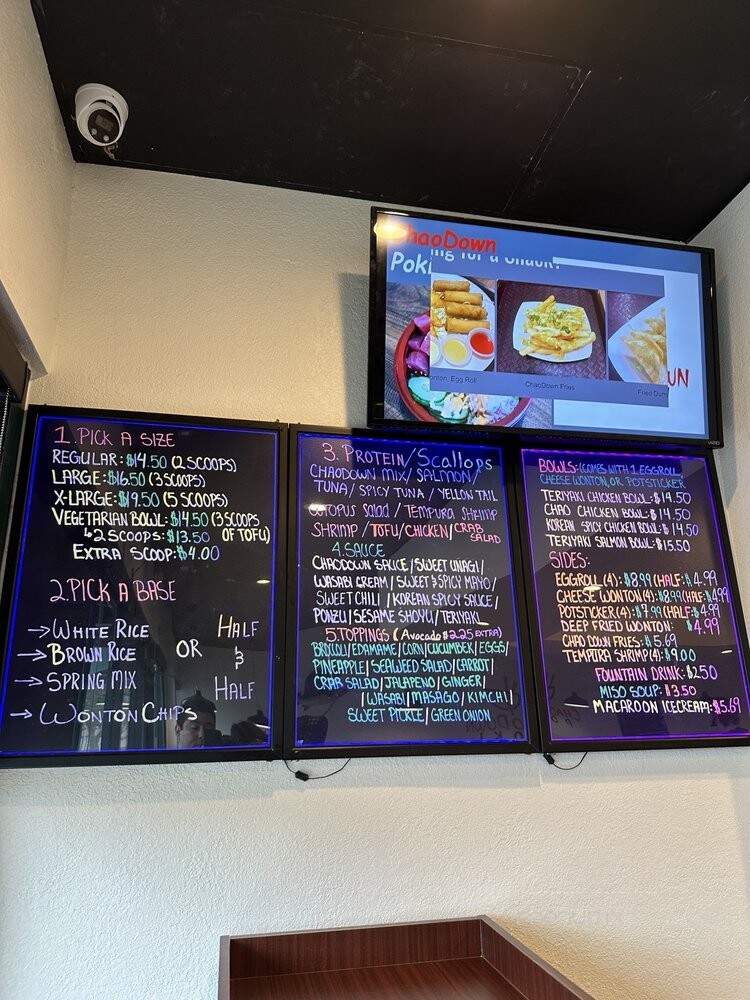 ChaoDown
ng for a Snack?
Poki
nton, Egg Roll
ChaoDown Fries
Fried Dum
UN
VIZIO
1. PICK A SIZE
REGULAR: $14.50 (2 SCOOPS)
LARGE: $16.50 (3 SCOOPS)
X-LARGE: $19.50 (5 SCOOPS)
VEGETARIAN BOWL: $14.50 (3 SCOOPS
↳2 SCOOPS: $13.50 OF TOFU)
EXTRA SCOOP: $4.00
2. PICK A BASE
→ WHITE RICE
→ BROWN RICE
→ SPRING MIX
→ WONTON CHIPS
OR
HALF
&
HALF
3. PROTEIN/Scallops
CHAODOWN MIX/SALMON/
TUNA/SPICY TUNA/YELLOW TAIL
octopus Salad/Tempura Shrimp
SHRIMP/TOFU/CHICKEN/CRAB SALAD
4. SAUCE
CHAODOWN SAUCE/SWEET UNAGI/
WASABI CREAM/SWEET & SPICY MAYO/
SWEET CHILI/KOREAN SPICY SAUCE/
PONZU/SESAME SHOYU/TERIYAKI
5. TOPPINGS (Avocado $2.25 EXTRA)
BROCOLI/EDAMAME/CORN/CUCUMBER/EGGS/
PINEAPPLE/SEAWEED SALAD/CARROT/
CRAB SALAD/JALAPENO/GINGER/
WASABI/MASAGO/KIMCHI/
SWEET PICKLE/GREEN ONION
BOWLS: (COMBS WITH 1 EGGROLL
CHEESE WONTON, OR POTSTICKER
TERIYAKI CHICKEN BOWL: $14.50
CHAO CHICKEN BOWL: $14.50
KOREAN SPICY CHICKEN BOWL: $14.50
TERIYAKI SALMON BOWL: $15.50
SIDES:
EGGROLL (4): $8.99 (HALF: $4.99
CHEESE WONTON (4): $8.99 (HALF: $4.99
POTSTICKER (4): $7.99 (HALF: $4.99
DEEP FRIED WONTON: $4.99
CHAO DOWN FRIES: $5.69
TEMPURA SHRIMP (4): $9.00
FOUNTAIN DRINK: $2.50
MISO SOUP: $3.50
MACAROON ICECREAM: $5.69